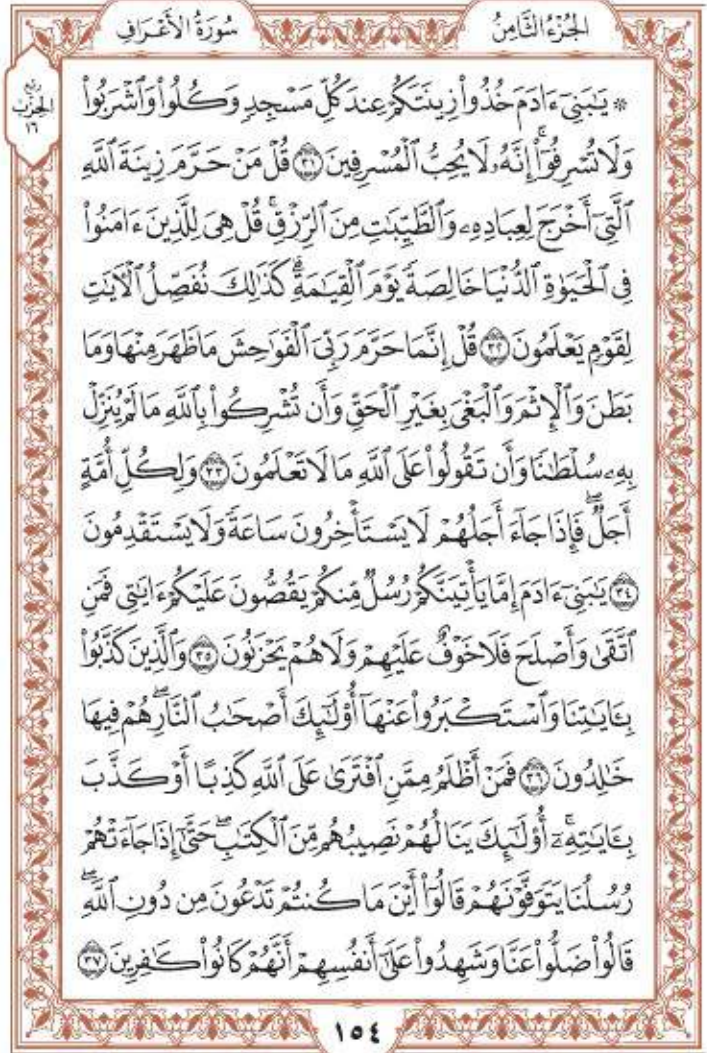 الجُزْءُ الثَّامِنُ
سُورَةُ الأَعْرَافِ
رُبْع
الحِزْب
١٦
۞ يَٰبَنِيٓ ءَادَمَ خُذُواْ زِينَتَكُمۡ عِندَ كُلِّ مَسۡجِدٖ وَكُلُواْ وَٱشۡرَبُواْ
وَلَا تُسۡرِفُوٓاْۚ إِنَّهُۥ لَا يُحِبُّ ٱلۡمُسۡرِفِينَ ٣١ قُلۡ مَنۡ حَرَّمَ زِينَةَ ٱللَّهِ
ٱلَّتِيٓ أَخۡرَجَ لِعِبَادِهِۦ وَٱلطَّيِّبَٰتِ مِنَ ٱلرِّزۡقِۚ قُلۡ هِيَ لِلَّذِينَ ءَامَنُواْ
فِي ٱلۡحَيَوٰةِ ٱلدُّنۡيَا خَالِصَةٗ يَوۡمَ ٱلۡقِيَٰمَةِۗ كَذَٰلِكَ نُفَصِّلُ ٱلۡأٓيَٰتِ
لِقَوۡمٖ يَعۡلَمُونَ ٣٢ قُلۡ إِنَّمَا حَرَّمَ رَبِّيَ ٱلۡفَوَٰحِشَ مَا ظَهَرَ مِنۡهَا وَمَا
بَطَنَ وَٱلۡإِثۡمَ وَٱلۡبَغۡيَ بِغَيۡرِ ٱلۡحَقِّ وَأَن تُشۡرِكُواْ بِٱللَّهِ مَا لَمۡ يُنَزِّلۡ
بِهِۦ سُلۡطَٰنٗا وَأَن تَقُولُواْ عَلَى ٱللَّهِ مَا لَا تَعۡلَمُونَ ٣٣ وَلِكُلِّ أُمَّةٍ
أَجَلٞۖ فَإِذَا جَآءَ أَجَلُهُمۡ لَا يَسۡتَأۡخِرُونَ سَاعَةٗ وَلَا يَسۡتَقۡدِمُونَ
٣٤ يَٰبَنِيٓ ءَادَمَ إِمَّا يَأۡتِيَنَّكُمۡ رُسُلٞ مِّنكُمۡ يَقُصُّونَ عَلَيۡكُمۡ ءَايَٰتِي فَمَنِ
ٱتَّقَىٰ وَأَصۡلَحَ فَلَا خَوۡفٌ عَلَيۡهِمۡ وَلَا هُمۡ يَحۡزَنُونَ ٣٥ وَٱلَّذِينَ كَذَّبُواْ
بِـَٔايَٰتِنَا وَٱسۡتَكۡبَرُواْ عَنۡهَآ أُوْلَٰٓئِكَ أَصۡحَٰبُ ٱلنَّارِۖ هُمۡ فِيهَا
خَٰلِدُونَ ٣٦ فَمَنۡ أَظۡلَمُ مِمَّنِ ٱفۡتَرَىٰ عَلَى ٱللَّهِ كَذِبًا أَوۡ كَذَّبَ
بِـَٔايَٰتِهِۦٓۚ أُوْلَٰٓئِكَ يَنَالُهُمۡ نَصِيبُهُم مِّنَ ٱلۡكِتَٰبِۖ حَتَّىٰٓ إِذَا جَآءَتۡهُمۡ
رُسُلُنَا يَتَوَفَّوۡنَهُمۡ قَالُوٓاْ أَيۡنَ مَا كُنتُمۡ تَدۡعُونَ مِن دُونِ ٱللَّهِۖ
قَالُواْ ضَلُّواْ عَنَّا وَشَهِدُواْ عَلَىٰٓ أَنفُسِهِمۡ أَنَّهُمۡ كَانُواْ كَٰفِرِينَ ٣٧
١٥٤